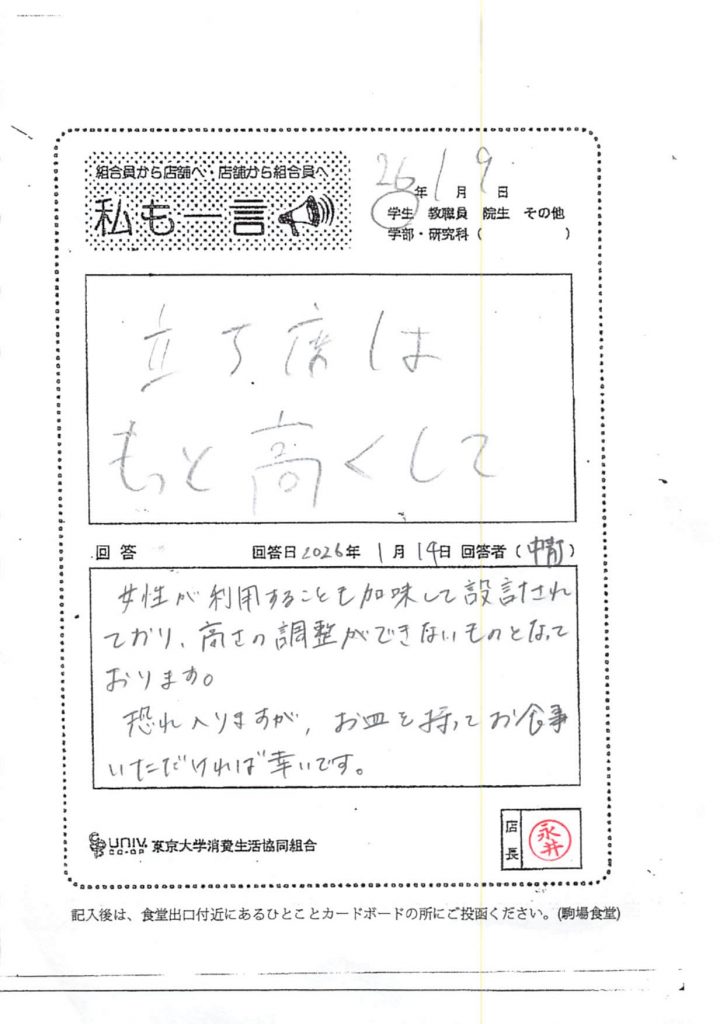 組合員から店舗へ・店舗から組合員へ
私も一言
26年 1月 9日
学生 教職員 院生 その他
学部・研究科（ ）
立ち席は
もっと高くして
回答 回答日2026年 1月 14日 回答者（中村）
女性が利用することも加味して設計され
ており、高さの調整ができないものとなって
おります。
恐れ入りますが、お皿を持ってお食事
いただければ幸いです。
univ. CO-OP 東京大学消費生活協同組合
店長 永井
記入後は、食堂出口付近にあるひとことカードボードの所にご投函ください。(駒場食堂)